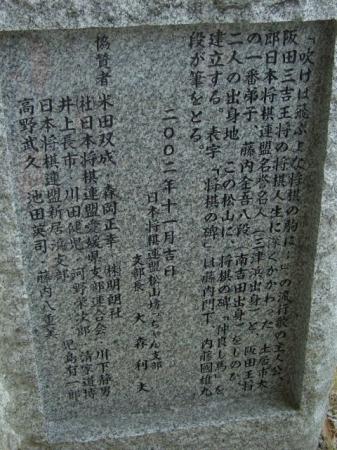 「吹けば飛ぶよな将棋の駒に…」の流行歌の主人公、
阪田三吉王将の将棋人生に深くかかわった、土居市太
郎日本将棋連盟名誉名人(三津浜出身)と、阪田王将
の一番弟子、藤内金吾八段(南吉田出身)をしのび、
二人の出身地、この松山に、将棋の碑「仲良し馬」を
建立する。表字「将棋の碑」は藤内門下、内藤國雄九
段が筆をとる。
二〇〇二年十一月吉日
日本将棋連盟松山坊っちゃん支部
支部長 大森利夫
協賛者 米田双成 森岡正幸 ㈱明朗社 川下静男
社日本将棋連盟愛媛県支部連合会 清家道博
井上長市 川田健児 河野栄次郎 児島有一郎
日本将棋連盟新居浜支部
高野武久 池田英司 藤内八重美